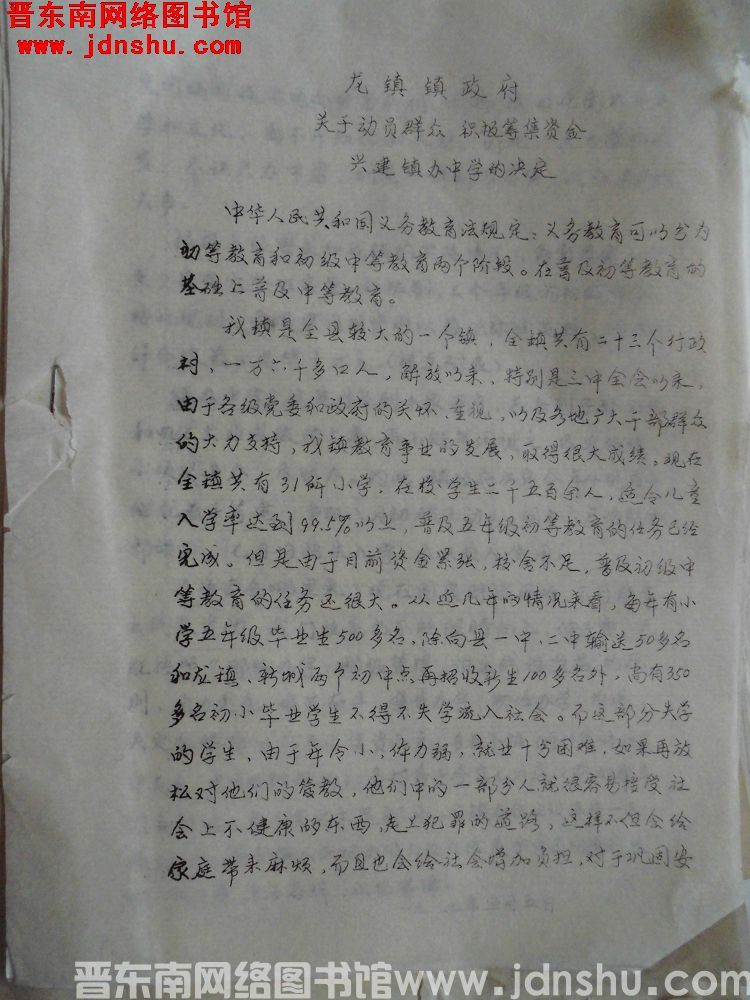 晋东南网络图书馆
www.jdnshu.com
龙镇镇政府
关于动员群众 积极筹集资金
兴建镇办中学的决定
中华人民共和国义务教育法规定：义务教育可以分为
初等教育和初级中等教育两个阶段。在普及初等教育的
基础上普及中等教育。
我镇是全县较大的一个镇，全镇共有二十三个行政
村，一万六千多口人，解放以来，特别是三中全会以来，
由于各级党委和政府的关怀、重视，以及各地广大干部群众
的大力支持，我镇教育事业的发展，取得很大成绩。现在
全镇共有31所小学，在校学生二千五百余人，适令儿童
入学率达到99.5%以上，普及五年级初等教育的任务已经
完成。但是由于目前资金紧张，校舍不足，普及初级中
等教育的任务还很大。从近几年的情况来看，每年有小
学五年级毕业生500多名，除向县一中、二中输送50多名
和龙镇、新城两个初中点再招收新生100多名外，尚有350
多名初小毕业学生不得不失学流入社会。而这部分失学
的学生，由于年令小，体力弱，就业十分困难，如果再放
松对他们的管教，他们中的一部分人就很容易接受社
会上不健康的东西，走上犯罪的道路，这样不但会给
家庭带来麻烦，而且也会给社会增加负担，对于巩固安
晋东南网络图书馆www.jdnshu.com